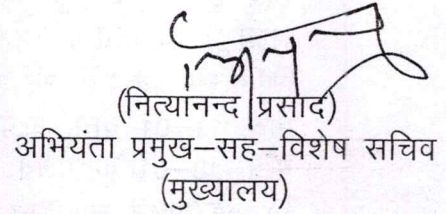 (नित्यानन्द प्रसाद)
अभियंता प्रमुख–सह–विशेष सचिव
(मुख्यालय)